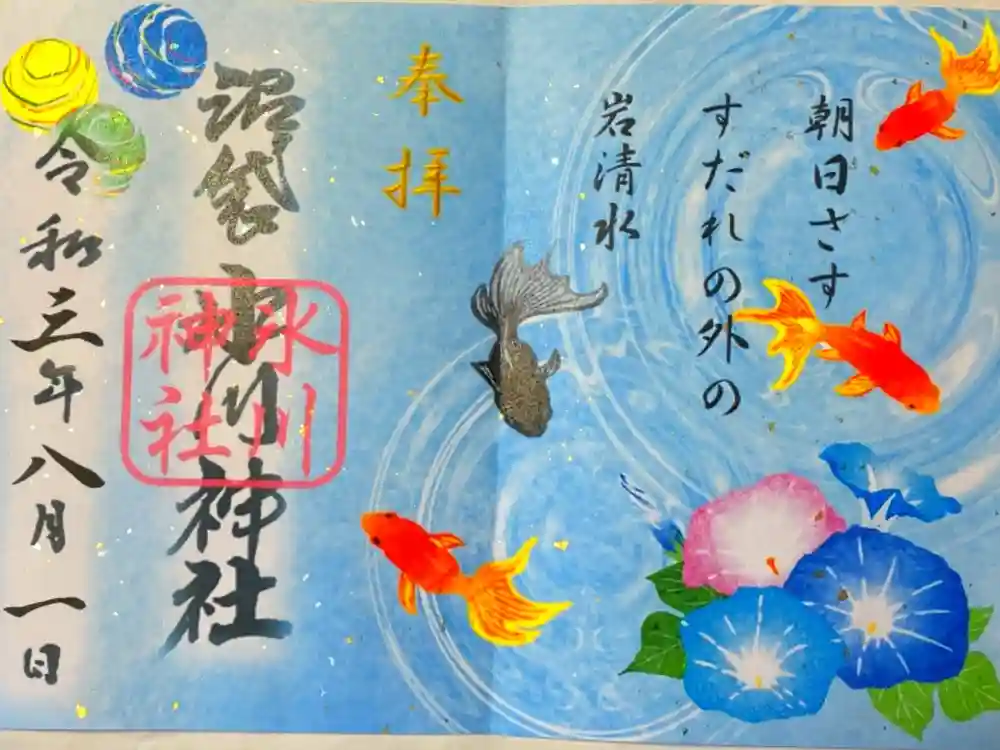 朝日さす
すだれの外の
岩清水
奉拝
沼袋氷川神社
氷川
神社
令和三年八月一日